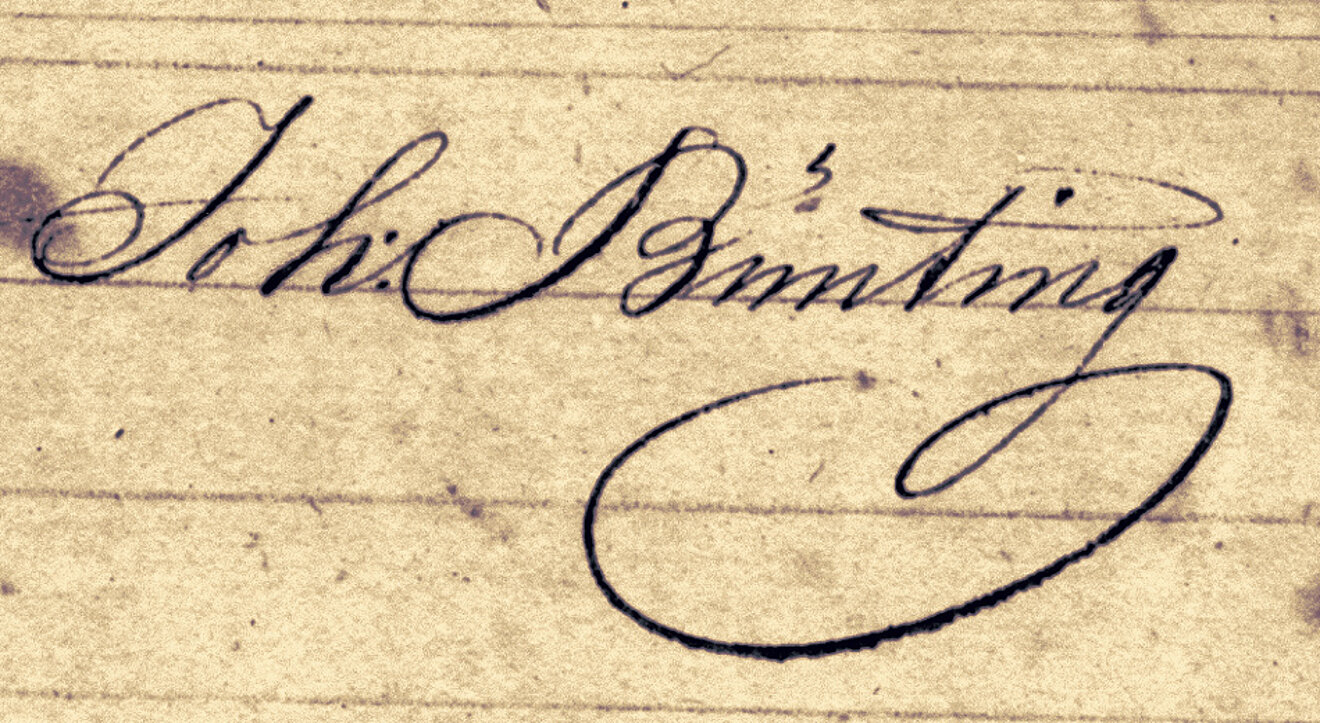 Joh: Bunting